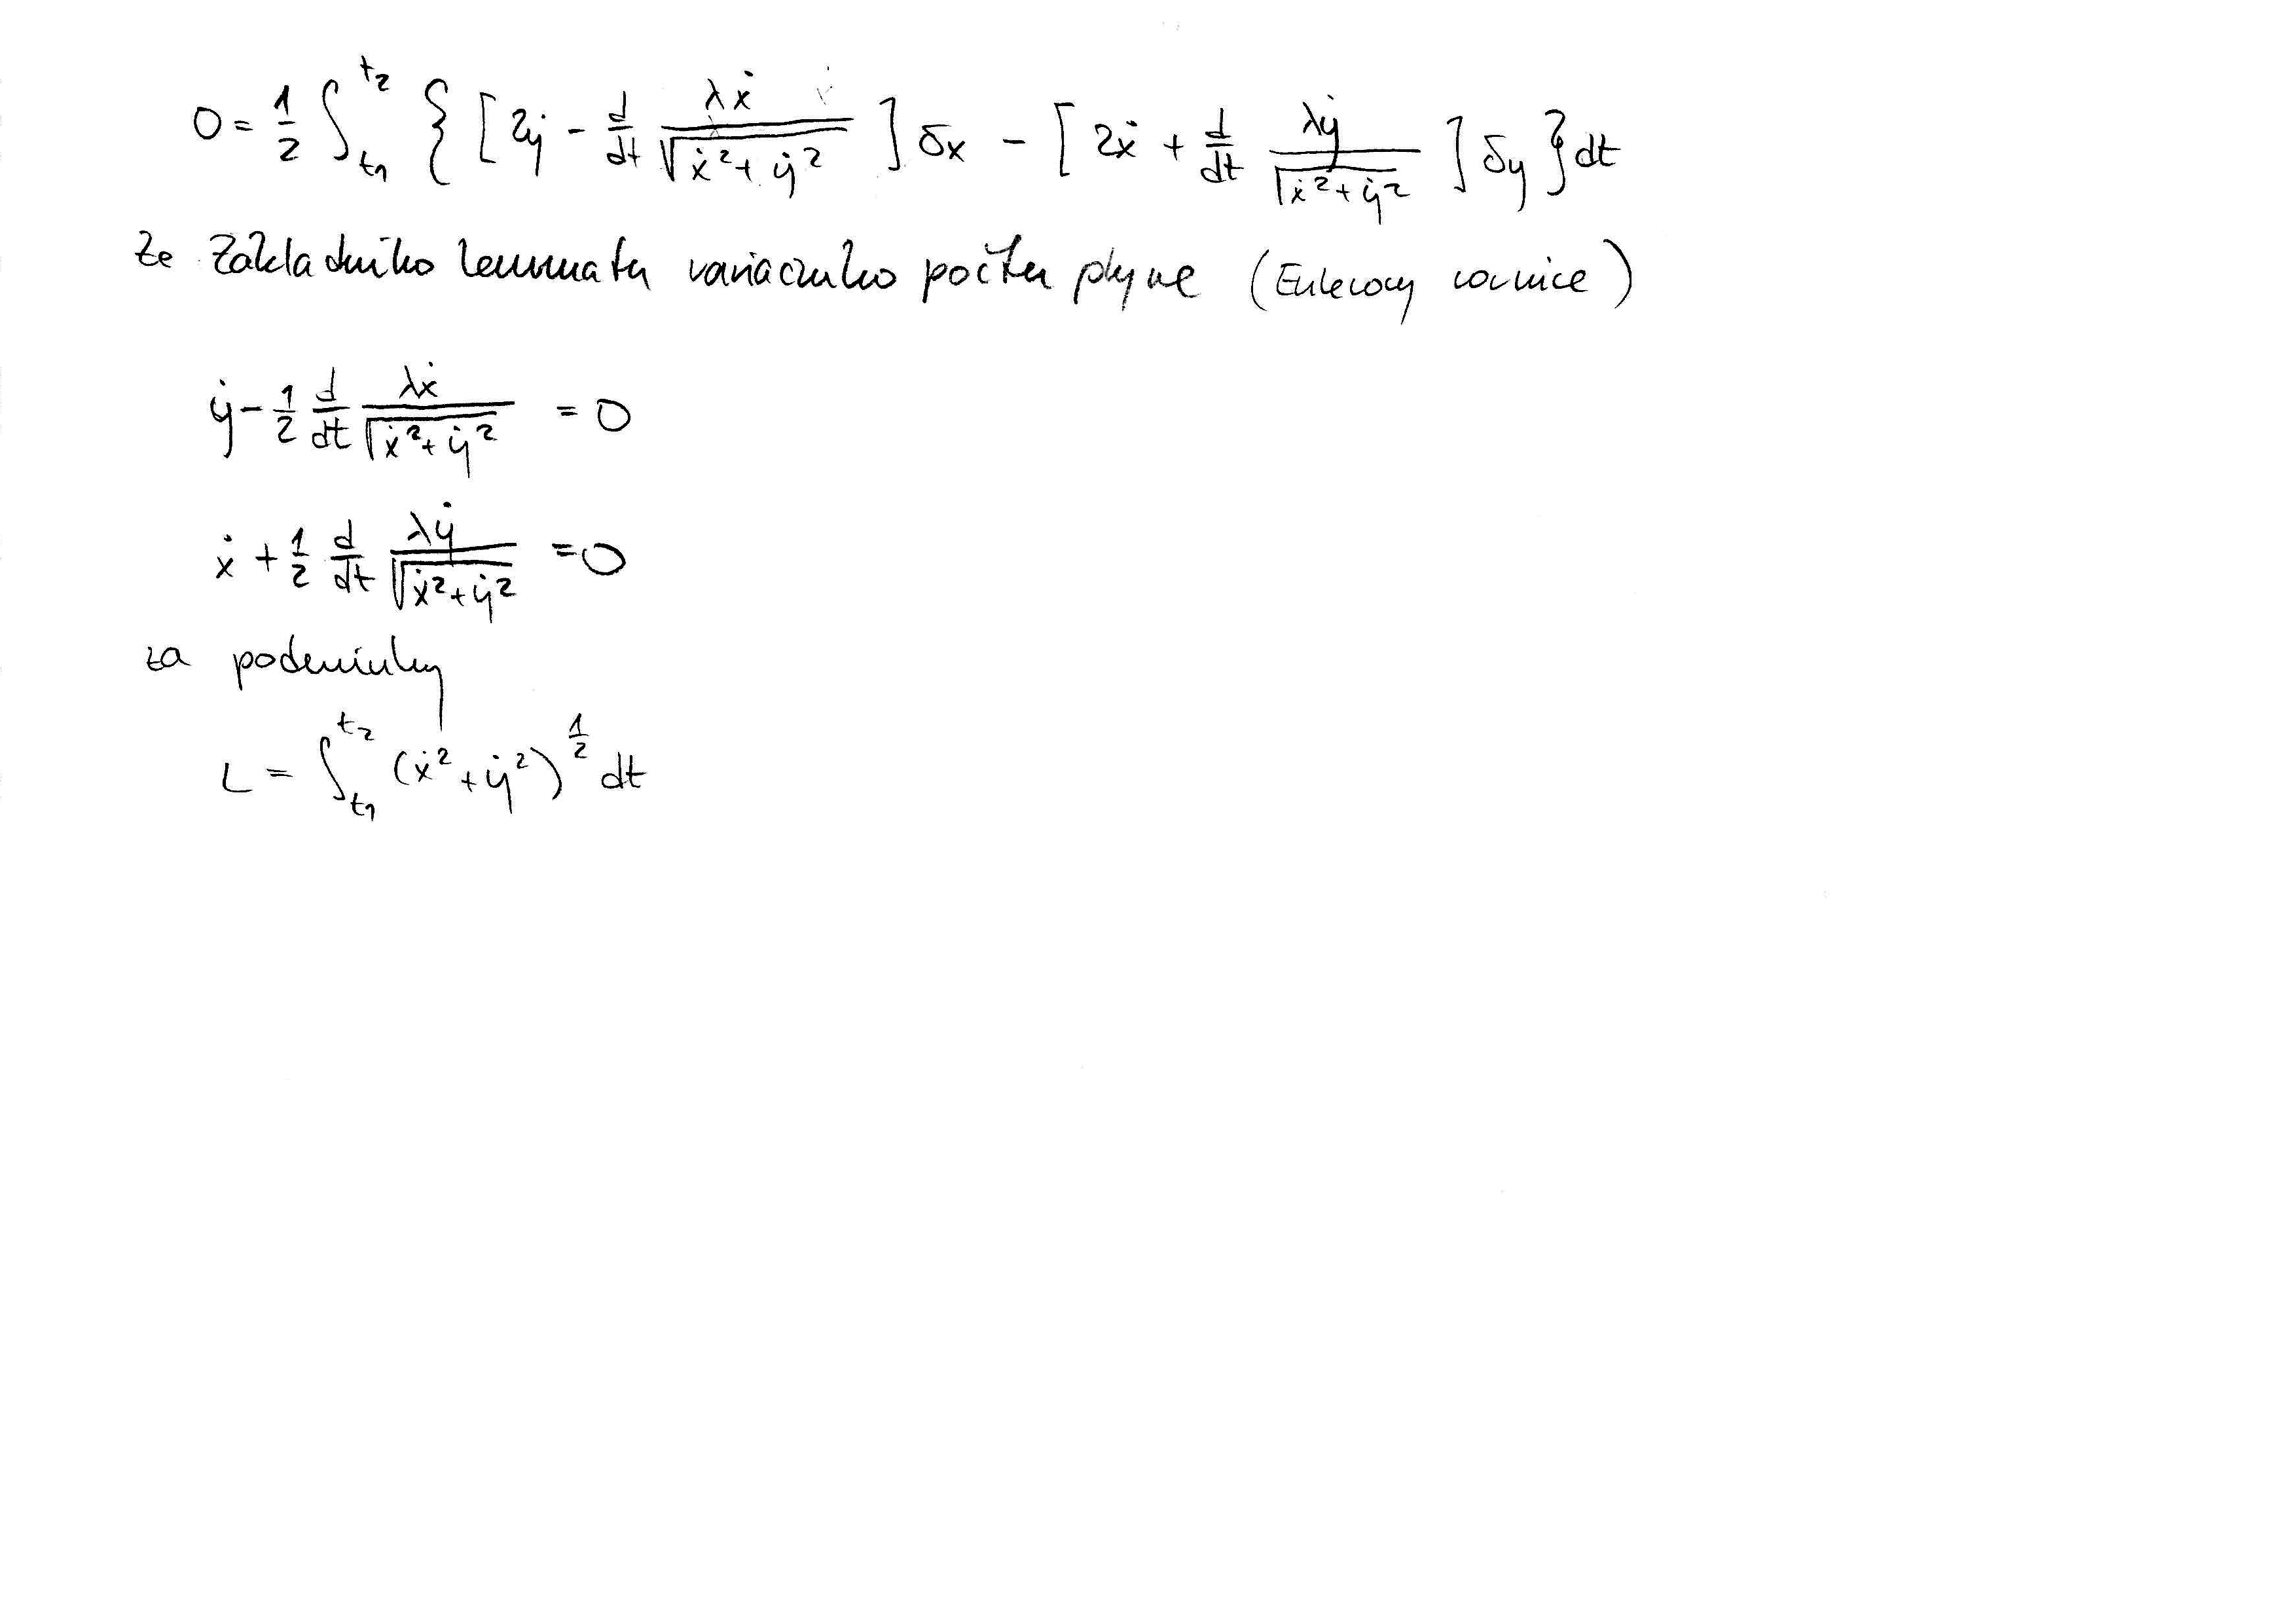 0 = \frac{1}{2} \int_{t_1}^{t_2} \left\{ \left[ 2\dot{y} - \frac{d}{dt} \frac{\lambda \dot{x}}{\sqrt{\dot{x}^2 + \dot{y}^2}} \right] \delta x - \left[ 2\dot{x} + \frac{d}{dt} \frac{\lambda \dot{y}}{\sqrt{\dot{x}^2 + \dot{y}^2}} \right] \delta y \right\} dt
Ze Základního lemmatu variačního počtu plyne (Eulerovy rovnice)
\dot{y} - \frac{1}{2} \frac{d}{dt} \frac{\lambda \dot{x}}{\sqrt{\dot{x}^2 + \dot{y}^2}} = 0
\dot{x} + \frac{1}{2} \frac{d}{dt} \frac{\lambda \dot{y}}{\sqrt{\dot{x}^2 + \dot{y}^2}} = 0
za podmínky
L = \int_{t_1}^{t_2} (\dot{x}^2 + \dot{y}^2)^{\frac{1}{2}} dt